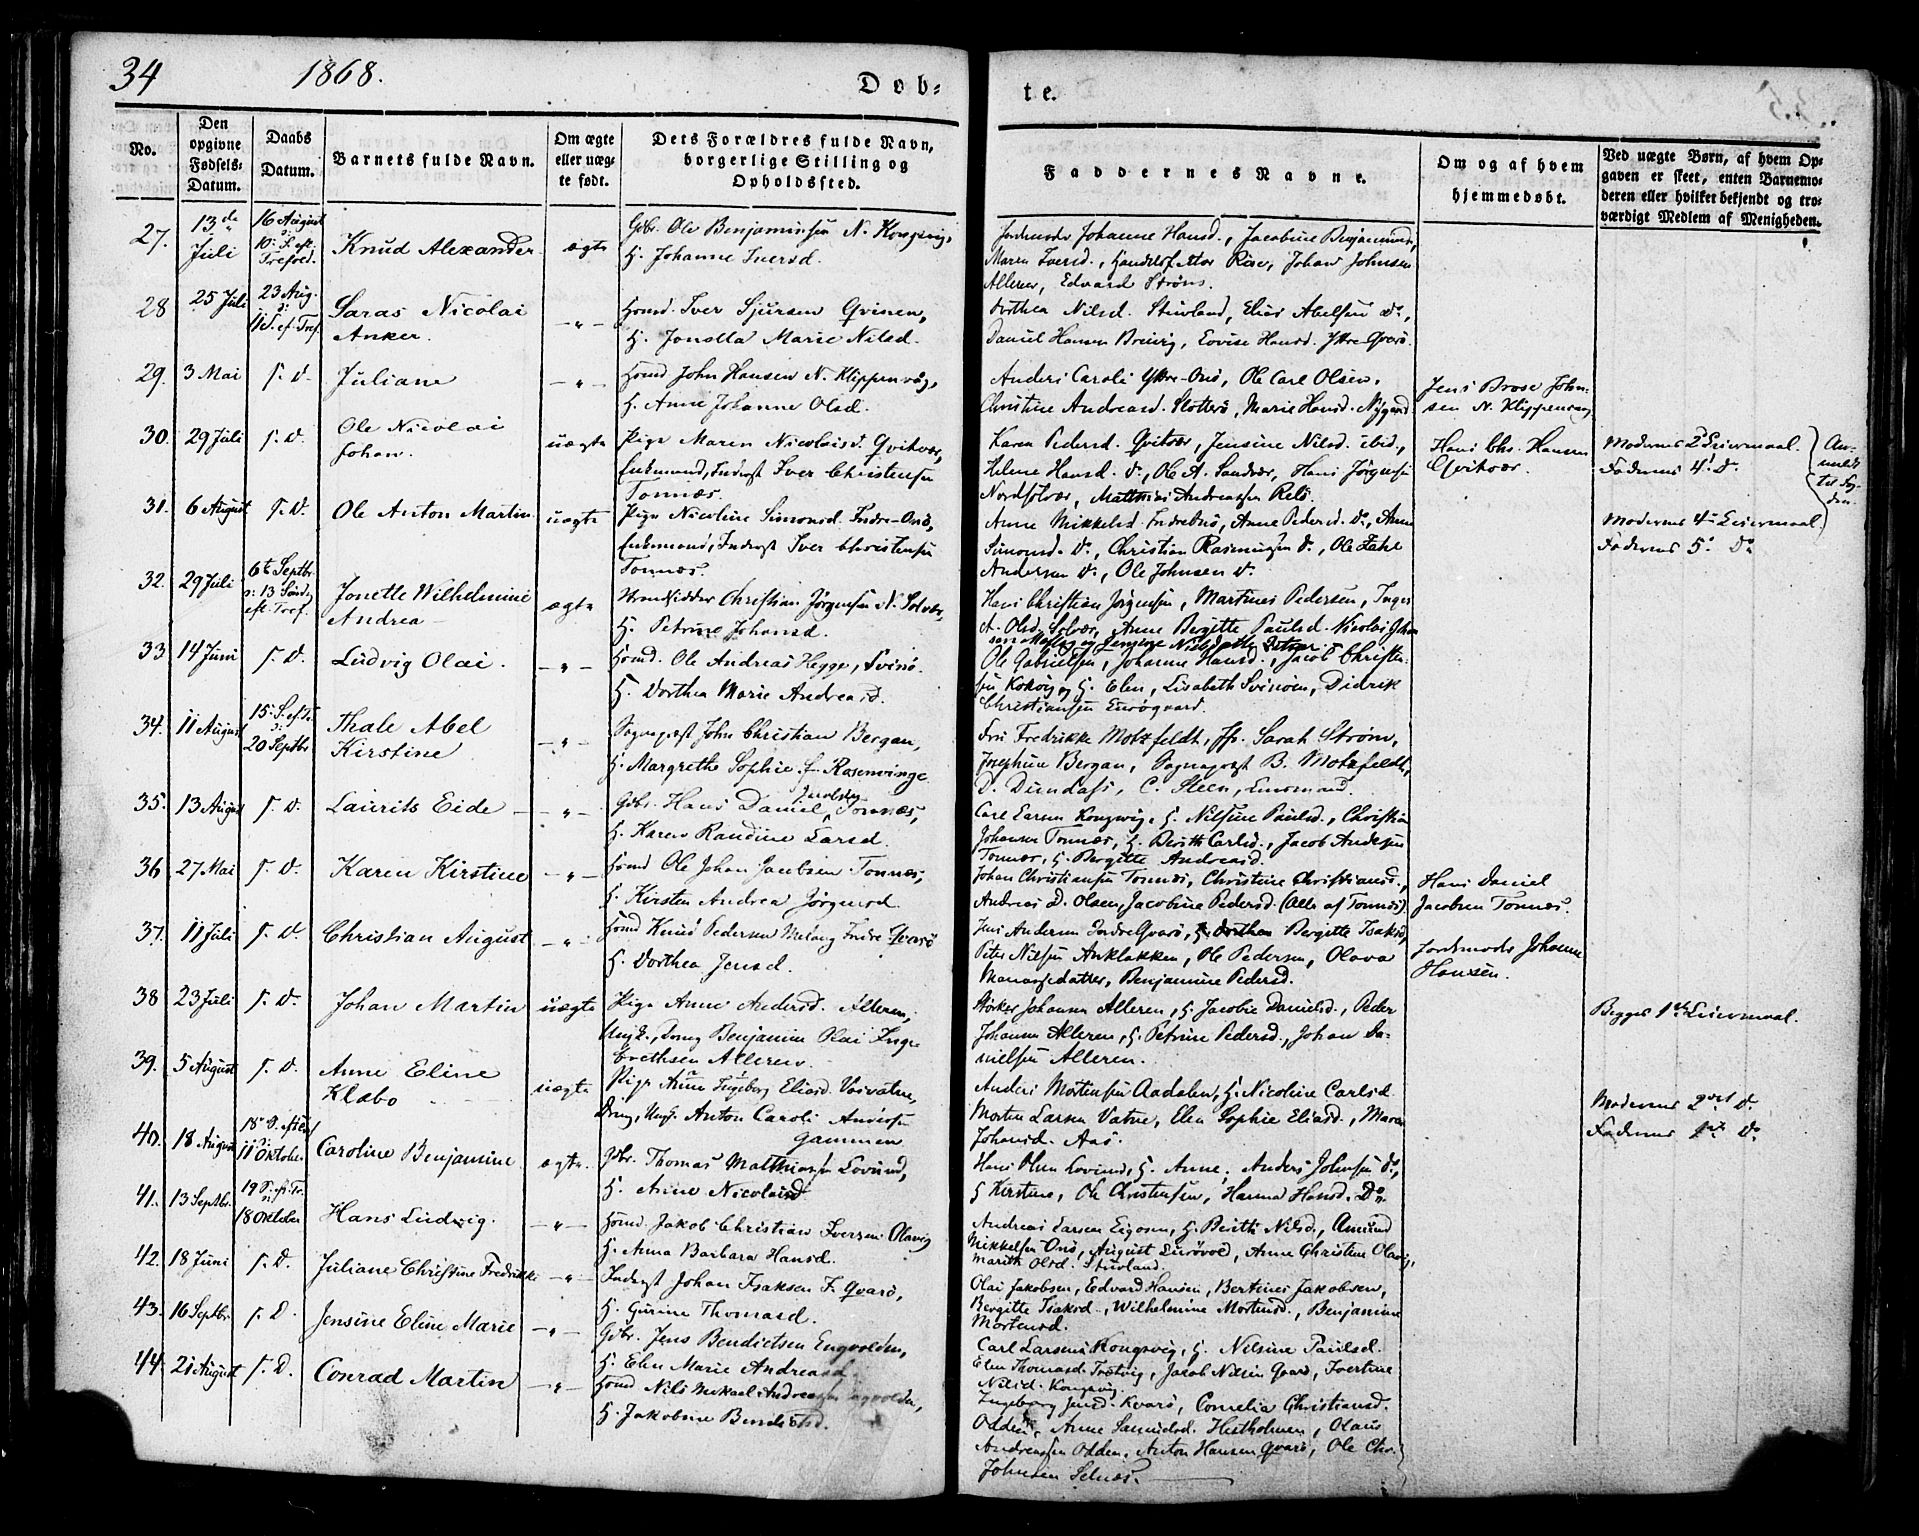 34
1868.
Døb-
te.
No.
Den opgivne Fødsels-Datum.
Daabs Datum.
Barnets fulde Navn.
Om ægte eller uæg-te født.
Dets Forældres fulde Navn, borgerlige Stilling og Opholdssted.
Faddernes Navne.
Om og af hvem hjemmedøbt.
Ved uægte Børn, af hvem Op-gaven er skeet, enten Barnemo-deren eller hvilket bekjendt og tro-værdigt Medlem af Menigheden.
27. 13de Juli
16 August
10. S. eft. Trefold.
Knud Alexander
ægte
Gbr. Ole Benjaminsen N. Kongsvig,
H. Johanne Iversd.
Jordemoder Johanne Hansd., Jacobine Benjaminsd.,
Maren Iversd., Johan Johnsen
Alleren, Edvard Strøms.
28 25 Juli
23 Aug.
11 S. ef. Tref.
Saras Nicolai
Anker.
-"-
Hsmd. Iver Sjursen Qvinen,
H. Jonetta Marie Nilsd.
Dorthea Nilsd. Stuvland, Elias Abelsen Do.,
Daniel Hansen Breivig, Lovise Hansd. Ytre-Qvarø.
29. 3 Mai s. D. Juliane
-"-
Hsmd John Hansen N. Klippenvåg,
H. Anne Johanne Olsd.
Anders Caroli Ytre-Onø, Ole Carl Olsen,
Christine Andreasd. Slotterø, Marie Hansd. Nygaard
Jens Brose John-
sen N. Klippenvaag
30. 29 Juli s. D.
Ole Nicolai
Johan.
uægte
Pige Maren Nicolaisd. Qvitvær,
Enkemand, Inderst Iver Christensen
Tonnæs.
Karen Pedersd. Qvitvær, Jensine Nilsd. ibid.,
Helene Hansd. D., Ole A. Sandvær, Hans Jørgensen
Nordsolvær, Mathias Andreassen Relø.
Hans Chr. Hansen
Qvitvær.
Moderens 2. Leiermaal
Faderens 4. D.
An-
meldt
til Fog-
den.
31. 6 August s. D. Ole Anton Martin
uægte
Pige Nicoline Simonsd. Indre-Onø,
Enkemand, Inderst Iver Christensen
Tonnæs.
Anne Mikkelsd. Indreonø, Anne Pedersd. D., Anne
Simonsd. D., Christian Rasmussen D., Ole Zahl
Andersen D., Ole Johnsen D.
Moderens 4. Leiermaal
Faderens 5. Do
32. 29 Juli
6te Septbr.
13 Søndg
eft. Tref.
Jonette Wilhelmine
Andrea
ægte
Strandsidder Christian Jørgensen N. Solvær,
H. Petrine Johansd.
Hans Christian Jørgensen, Martines Pedersen, Inger
A. Olsd. Solvær, Anne Bergitte Paulsd. Nicolai Johan
33 14 Juni s. D. Ludvig Olai.
-"-
Hsmd. Ole Andreas Hegge, Svinø.
H. Dorthea Marie Andreasd.
Ole Gabrielsen, Johanne Hansd., Jacob Christen-
sen Kokvig og H. Elen, Lisabeth Svinøen, Didrik
Christiansen Lurøgaard.
34. 11 August
15. S. ef. Tr.
20 Septbr.
Thale Abel
Kirstine
-"-
Sognepræst John Christian Bergan,
H. Margrethe Sophie f. Rosenvinge
Fru Fredrikke Motzfeldt, Jfr. Sarah Strøm,
Josephine Bergan, Sognepræst B. Motzfeldt,
D. Dundass, C. Steen,
35. 13 August s. D. Laurits Eide
-"-
Gbr. Hans Daniel Jacobsen Tonnæs,
H. Karen Randine Larsd.
Carl Larsen Kongsvig, H. Nilsine Paulsd., Christian
Johansen Tonnæs, H. Berith Carlsd., Jacob Andersen
Tonnæs, H. Bergitte Andreasd.
36 27 Mai s. D. Karen Kirstine
-"-
Hsmd Ole Johan Jacobsen Tonnæs,
H. Kirsten Andrea Jørgensd.
Johan Christiansen Tonnæs, Christine Christiansd.,
Andreas D. Olsen, Jacobine Pedersd. (Alle af Tonnæs).
Hans Daniel
Jacobsen Tonnæs.
37. 11 Juli s. D. Christian August
-"-
Hsmd Knud Pedersen Meløvg Indre Qvarø
H. Dorthea Jensd.
Jens Andersen Indre Qvarø, H. Dorthea Bergitte Isaksd,
Peter Nilsen Anklakken, Ole Pedersen, Olava
Manassedatter, Benjamine Pedersd.
Jordemoder Johanne
Hansen.
38 23 Juli s. D. Johan Martin
uægte
Pige Anne Andersd. Alleren,
Ungk., Dreng Benjamin Olai Inge-
brethsen Alleren
Størker Johansen Alleren, H. Jacobie Danielsd., Peder
Johansen Alleren, H. Petrine Pedersd., Johan Da-
nielsen Alleren.
Begges 1ste Leiermaal.
39. 5 August s. D. Anne Eline
Klabo
uægte
Pige Anne Ingeborg Eliasd. Vatne,
Dreng, Ungk. Anton Caroli
Gammen
Anders Mortensen Aadalen, H. Nicoline Carlsd
Morten Larsen Vatne, Elen Sophie Eliasd., Maren
Johansd. Aas.
Moderens 2det D.
Faderens 1ste Do
40. 18 August
11 Oktober
Caroline Benjamine
ægte.
Gbr. Thomas Matthiassen Lovund,
H. Anne Nicolaisd
Hans Olsen Lovund, H. Anne, Anders Johnsen Do.,
H Kirstine, Ole Christensen, Hanna Hansd. Do.
41. 13 Septbr.
19 S. eft. Tr.
18 Oktober
Hans Ludvig.
-"-
Hsmd. Jakob Christian Iversen Olavig
H. Anna Barbara Hansd.
Andreas Larsen Eigosen, H. Berith Nilsd., Amund
Mikkelsen Onø, August Lurøvold, Anne Christine Olavig,
Marith Olsd. Stuvland.
42. 18 Juni s. D. Juliane Christine Fredrikke
-"-
Inderst Johan Isaksen I. Qvarø,
H. Gurine Thomasd.
Olai Jakobsen, Edvard Hansen, Bertines Jakobsen,
Bergitte Isaksd., Wilhelmine Mortensd., Benjamine
Mortensd.
43. 16 Septbr. s. D. Jensine Eline Marie
-"-
Gbr. Jens Bendictsen Engvolden,
H. Elen Marie Andreasd
Carl Larsen Kongsvig, H. Nilsine Paulsd.
Elen Thomasd. Trætvig, Jacob Nilsen Qvarø, Ivertine
Nilsd. Kongsvig.
44. 21 August s. D. Conrad Martin
-"-
Hsmd Nils Mikael Andreassen Engvolden,
H. Jakobine Bendictsd.
Ingeborg Jensd. Kvarø, Cornelia Christiansd.
Odden, Anne Samuelsd. Hestholmen, Olaus
Andreassen Odden, Anton Hansen Qvarø, Ole Chr.
Johnsen Selnæs.